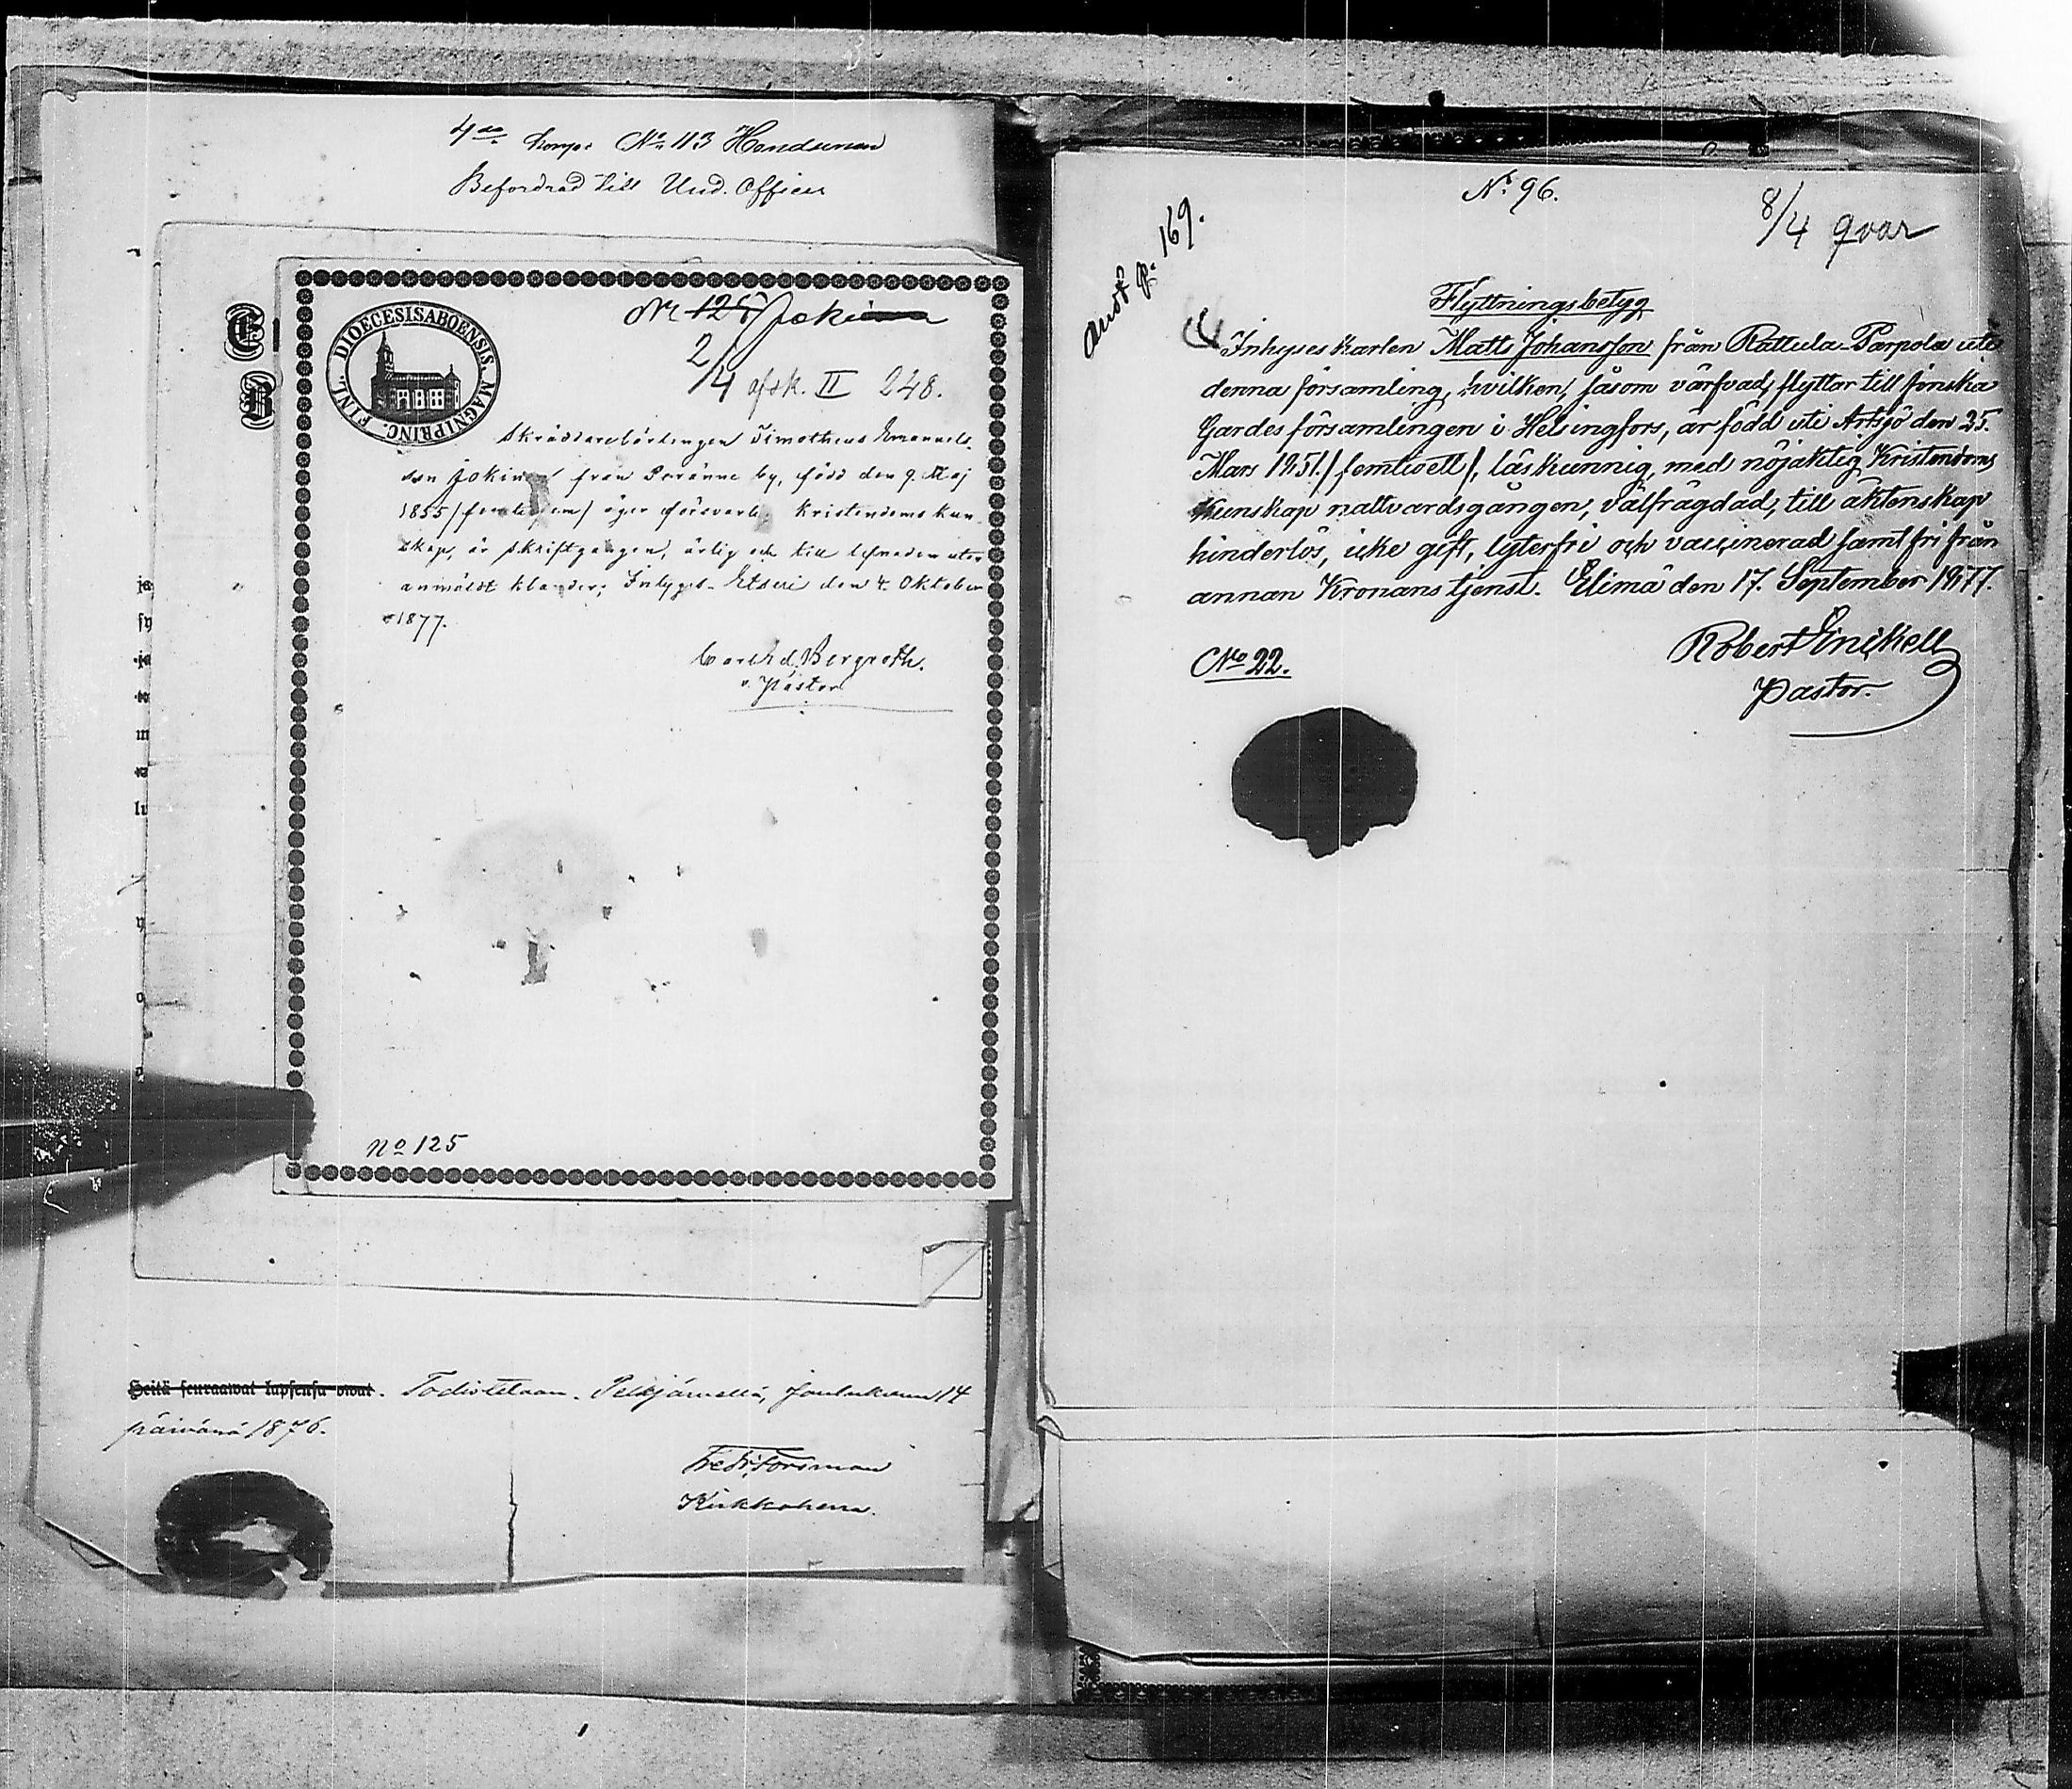 4de komp. No 113
Befordrad till Und. Officer
DIOECESIS ABOENSIS. MAGNI PRINC. FINL.
Nr 125 Jokinen
2/4 afsk. II 248.
Skräddarelärlingen Timotheus Emanuels-
son Jokinen från Peränne by, född den 9. Maj
1855 / femtiofem / äger försvarlig kristendoms kun-
skap, är skriftgången, ärlig och till lefnaden utan
anmäldt klander; Intygas. Etseri den 4. Oktober
1877.
Carl Ad. Bergroth.
v. Pastor
No 125
ja
sy
m
lu
y
o
Seitä seuraawat lapsensa owat. Todistetaan. Pelkjärvellä, Joulukuun 14
päivänä 1876.
Fredr. Forsman
Kirkkoherra.
No 96.
8/4 qvar
p. 169.
Flyttningsbetyg
Inhyseskarlen Matts Johansson från Rattula-Parpola uti
denna församling, hvilken, såsom värfvad, flyttar till finska
Gardes församlingen i Helsingfors, är född uti Artsjö den 25.
Mars 1851./femtioett/, läskunnig, med nöjaktig Kristendoms
Kunskap nattvardsgången, välfrägdad, till äktenskap
hinderlös, icke gift, lyterfri och vaccinerad samt fri från
annan Kronans tjenst. Elimä den 17. September 1877.
No 22.
Robert Inickell
Pastor.